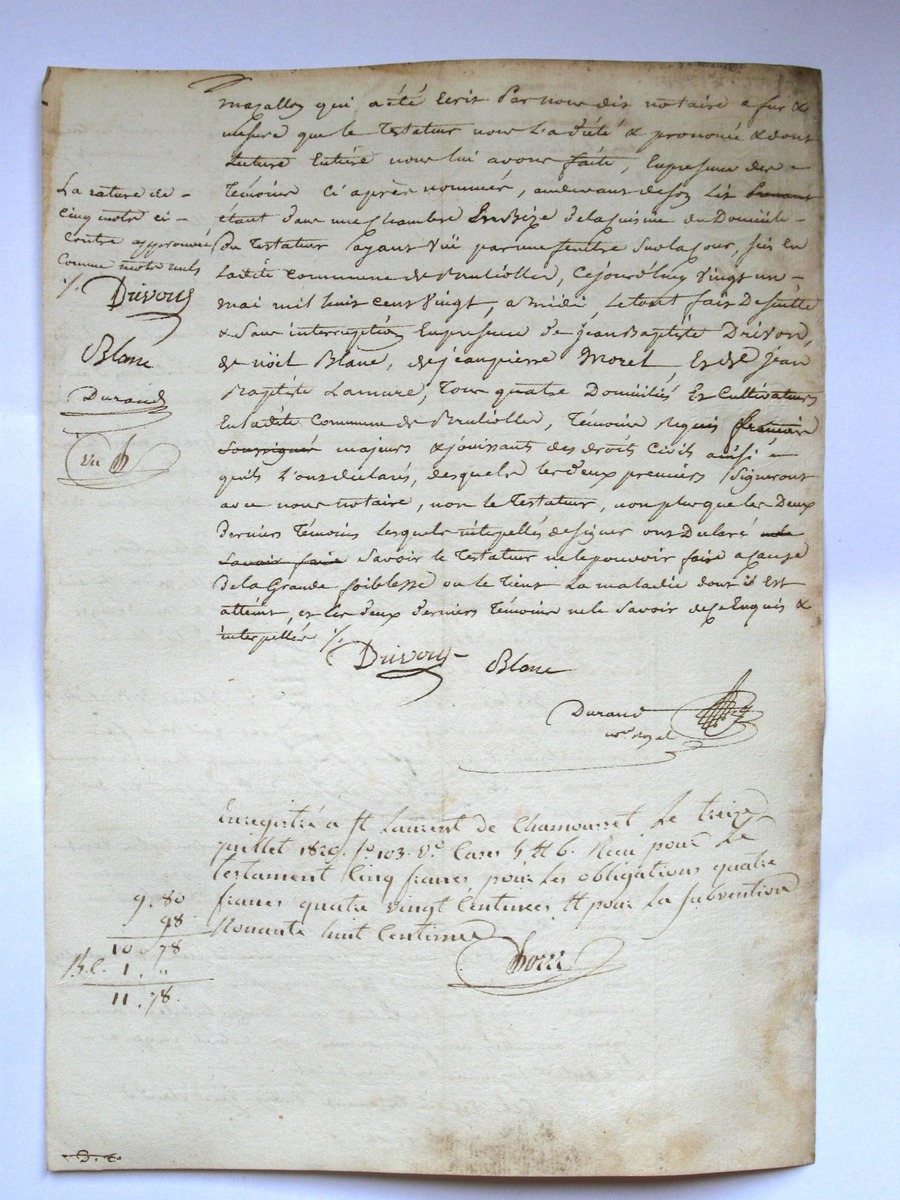 mazallon qui a été Ecrit Par nous dit notaire a fur &
mesure que le Testateur nous l'a dicté & prononcé & dont
lecture Entiére nous lui avons faite, En presence des
Témoins Ci après nommés, audevant de son Lit
étant dans une Chambre de la Cuisine du Domicile
du Testateur Layant Vüe par une fenêtre Sur la Cour, sis En
laditte Commune de Brulliolles, Cejourdhuy Vingt un
mai mil huit cent Vingt, a midi, le tout fait De suitte
& Sans interruption En presence de Jean Baptiste Drivon,
de nöel Blanc, de jean pierre Morel, Et de Jean
Baptiste Lamure, Tous quatre Domiciliés Et Cultivateurs
En ladite Commune de Brulliolles, Témoins Requis francais
Soussignés majeurs & jouissants des droits Civils ainsi
quils L'ont déclarés, desquels les deux premiers Signeront
avec nous notaire, non le Testateur, non plus que les Deux
Derniers Témoins Lesquels intepellés de Signer ont Declaré
Savoir faire Savoir le Testateur ne le pouvoir faire a Cause
de la Grande foiblesse ou le Tient La maladie dont il Est
atteint, et les deux derniers Témoins ne le Savoir de ce Enquis &
interpellés ./.
Drivon Blanc
Durand
nre royal
La rature de
Cinq mots ci
Contre approuvée
Comme mots nuls
./.
Drivon
Blanc
Durand
Enregistré a St Laurent de Chamousset Le treize
juillet 1820. fo 103. Vo Cases 5 et 6. Reçu pour Le
testament Cinq francs pour les obligations quatre
francs quatre Vingt Centimes et pour la Subvention
Nonante huit Centimes
9. 80
98
10. 78
1. "
11. 78.